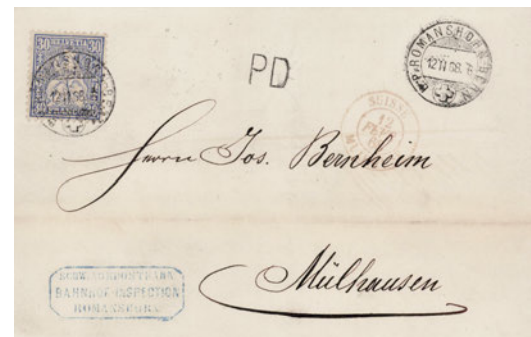 30 HELVETIA 30
PD
ROMANSHORN-BERN
12 II 68
SUISSE
12
Herrn Jos. Bernheim
Mülhausen
BAHNHOF-INSPECTION
ROMANSHORN